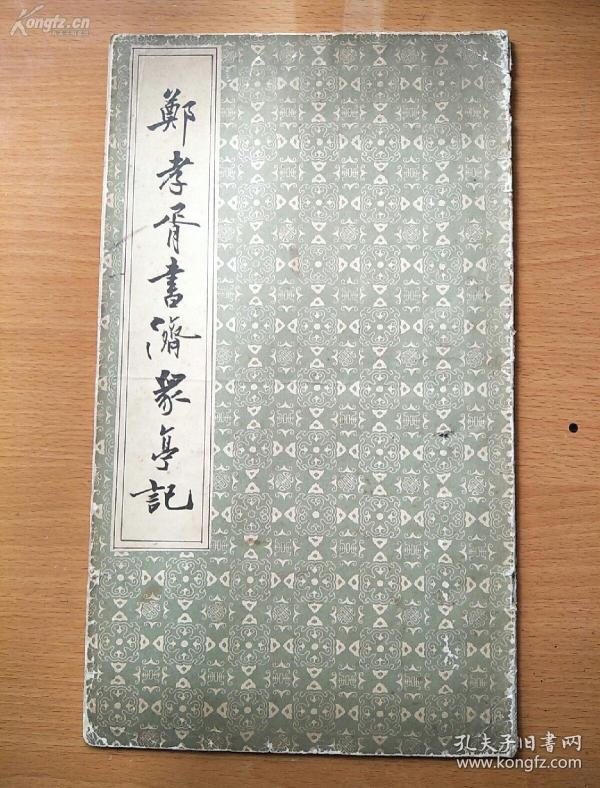 Kongfz.cn
鄭孝胥書濟眾亭記
孔夫子旧書网
www.kongfz.com